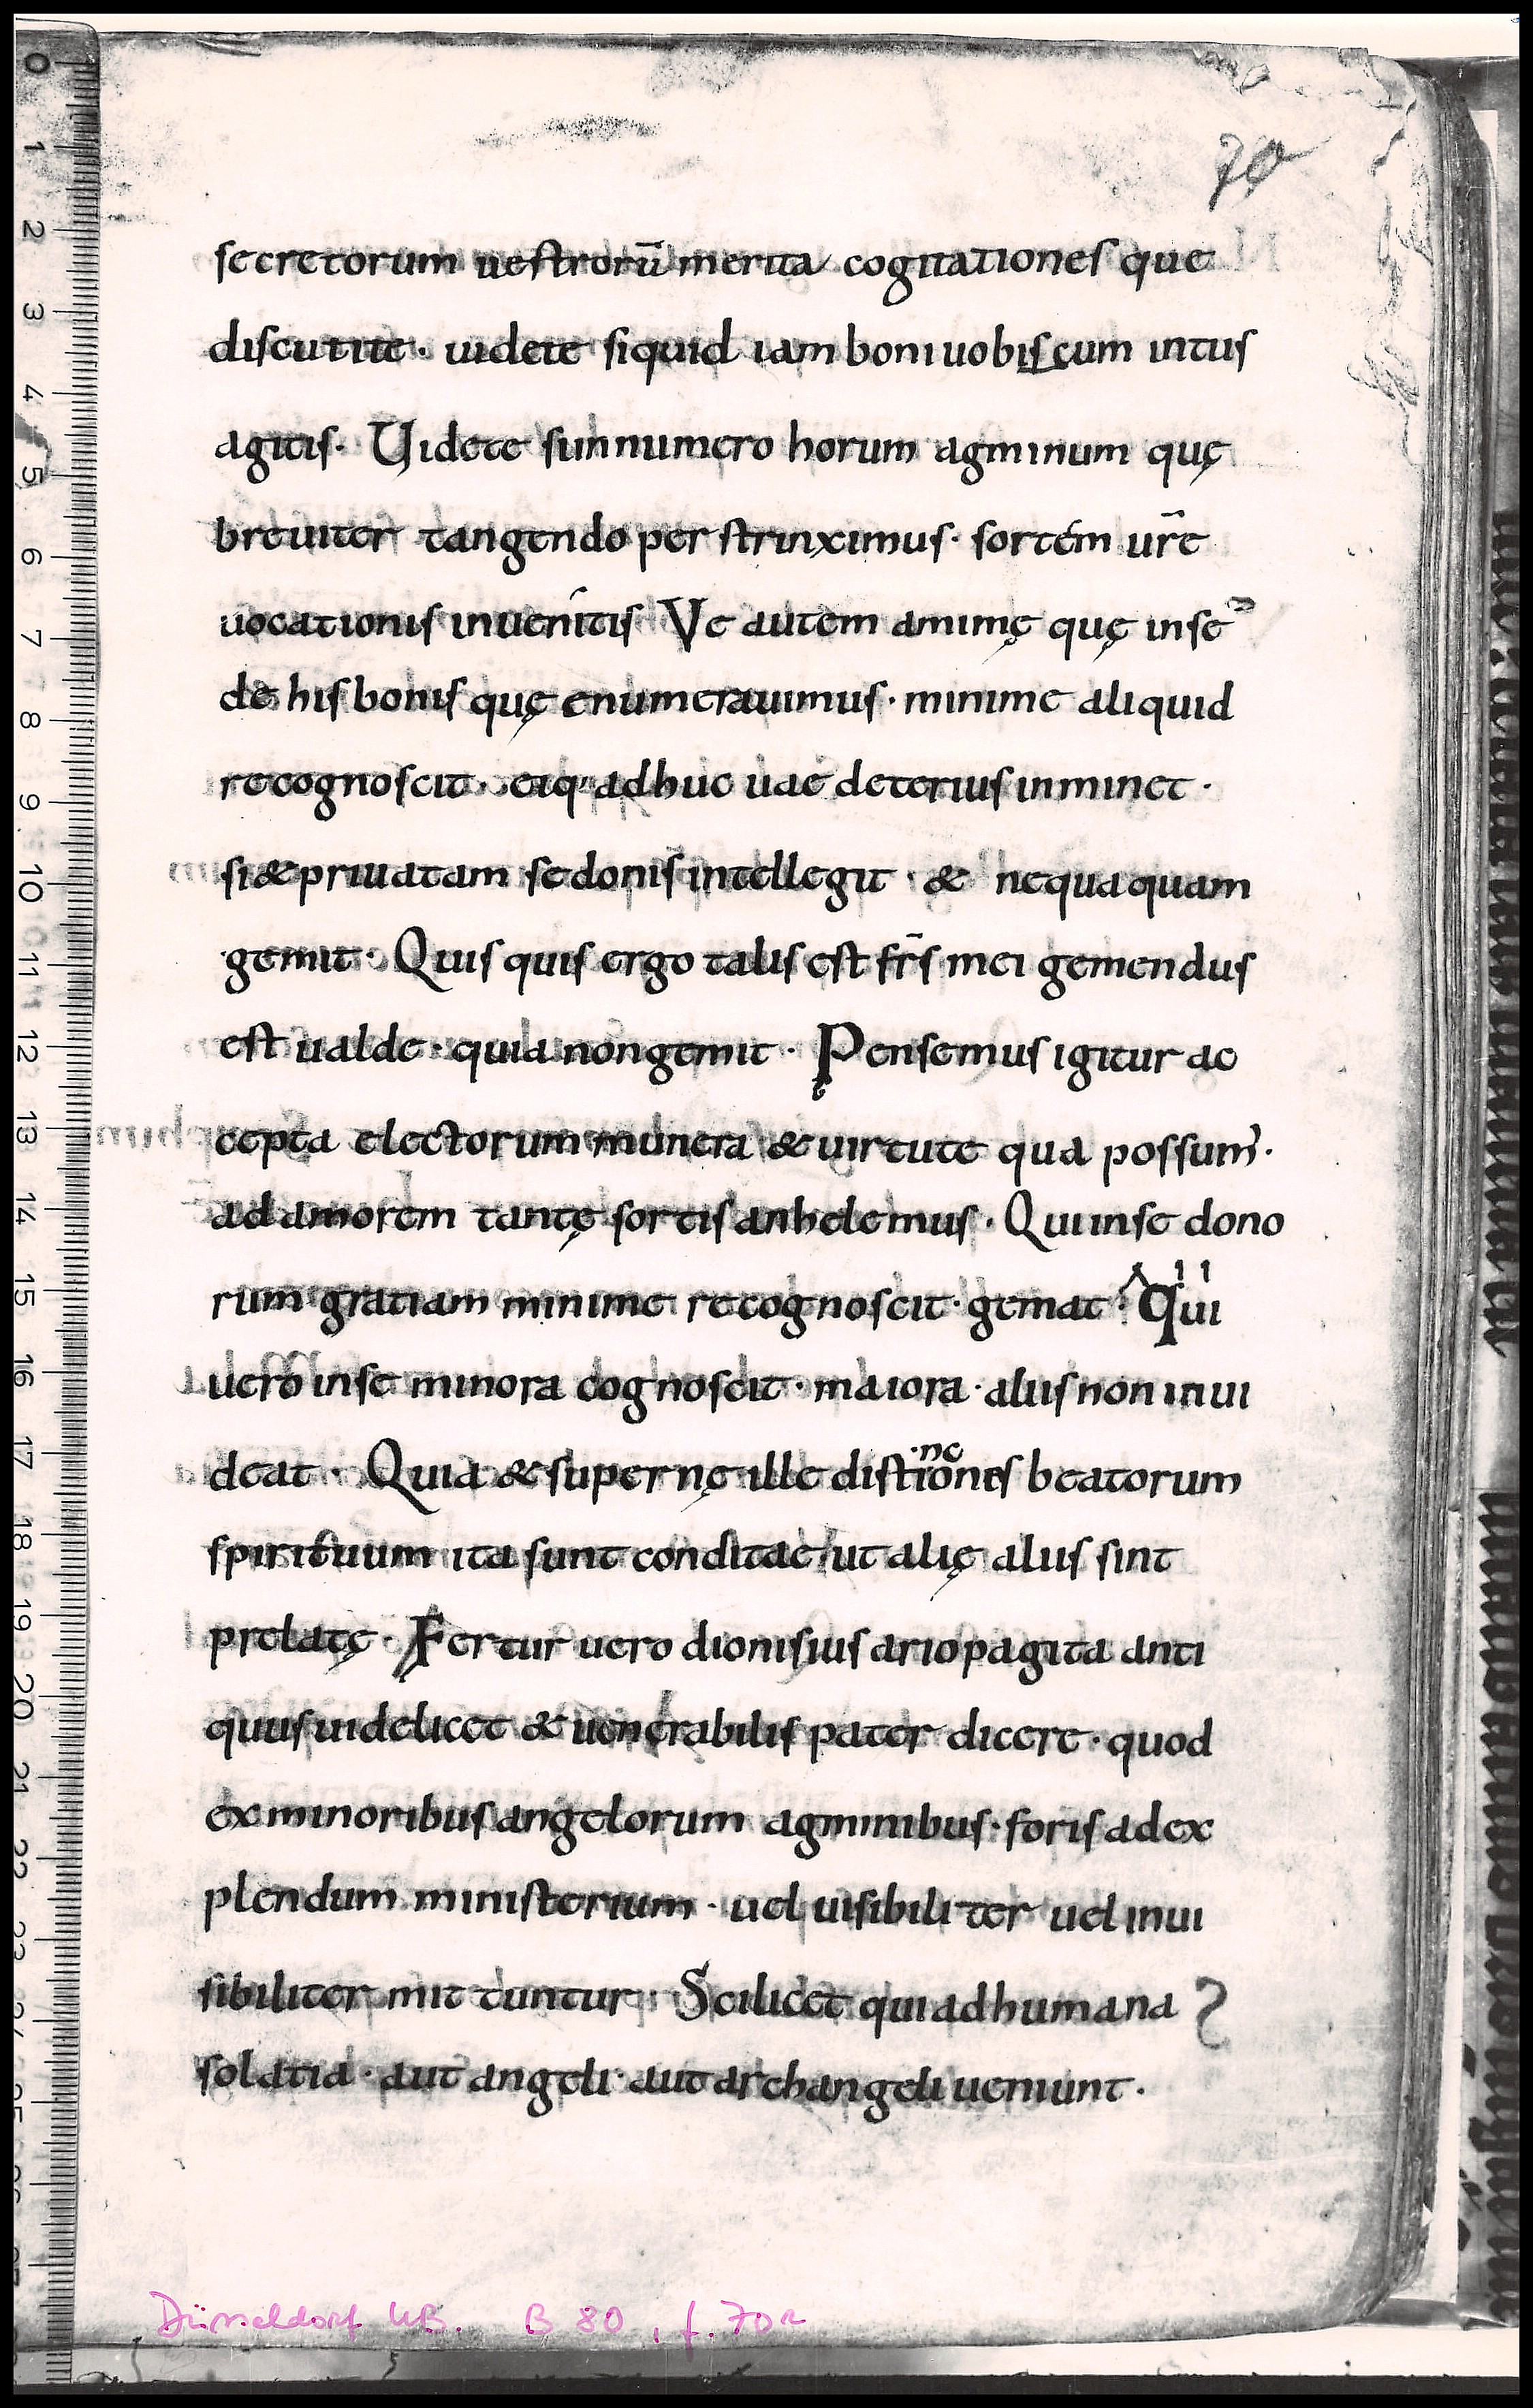 70
secretorum uestrorū merita cogitationes que
discutite · uidete siquid iam boni uobiscum intus
agitis · Uidete siin numero horum agminum quę
breuiter tangendo per strinximus · sortém ur̄e
uocationis inuenítis Ve autem animę quę in se
de his bonis quę enumerauimus · minime aliquid
recognoscit · eiq; adhuc uae deterius inminet ·
si & priuatam se donis intellegit · & nequaquam
gemit · Quis quis ergo talis est fr̄s mei gemendus
est ualde · quia non gemit · Pensemus igitur ac
cepta electorum munera & uirtute qua possum᾽ ·
ad amorem tantę sortis anhelemus · Qui in se dono
rum gratiam minime recognoscit · gemat · Qui
uero in se minora cognoscit · maiora · aliis non inui
deat · Quia & supernę ille distinctiones beatorum
spirituum ita sunt conditae ut alię aliis sint
prelatę · Fertur uero dionisius ariopagita anti
quus uidelicet & uenerabilis pater dicere · quod
ex minoribus angelorum agminibus · foris ad ex
plendum ministerium · uel uisibiliter uel inui
sibiliter mit tuntur · Scilicet qui ad humana
solatia · aut angeli · aut archangeli ueniunt ·
Düsseldorf UB. B 80, f. 70r
0
1
2
3
4
5
6
7
8
9
10
11
12
13
14
15
16
17
18
19
20
21
22
23